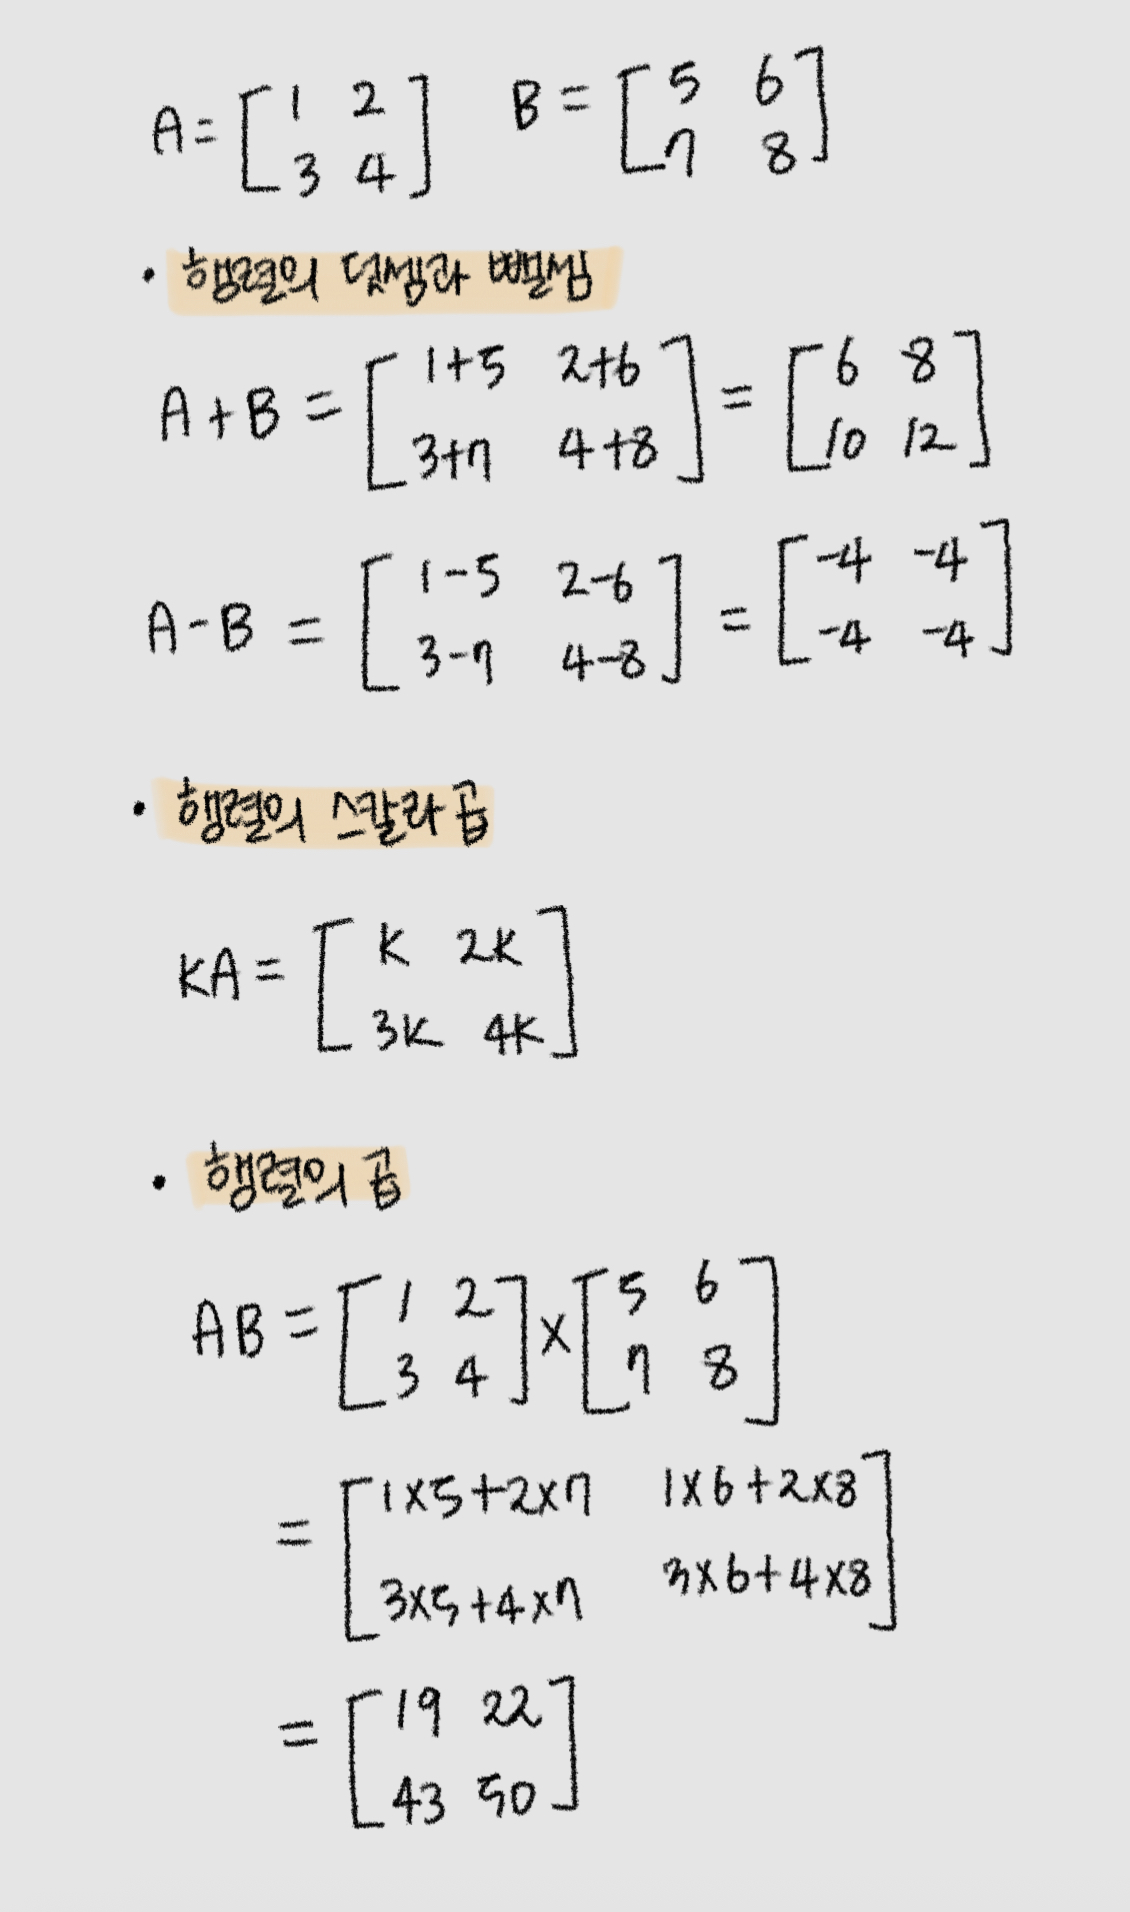 A = [ 1 2 ] B = [ 5 6 ]
[ 3 4 ] [ 7 8 ]
• 행렬의 덧셈과 뺄셈
A + B = [ 1+5 2+6 ] = [ 6 8 ]
[ 3+7 4+8 ] [ 10 12 ]
A - B = [ 1-5 2-6 ] = [ -4 -4 ]
[ 3-7 4-8 ] [ -4 -4 ]
• 행렬의 스칼라 곱
KA = [ K 2K ]
[ 3K 4K ]
• 행렬의 곱
AB = [ 1 2 ] × [ 5 6 ]
[ 3 4 ] [ 7 8 ]
= [ 1×5+2×7 1×6+2×8 ]
[ 3×5+4×7 3×6+4×8 ]
= [ 19 22 ]
[ 43 50 ]